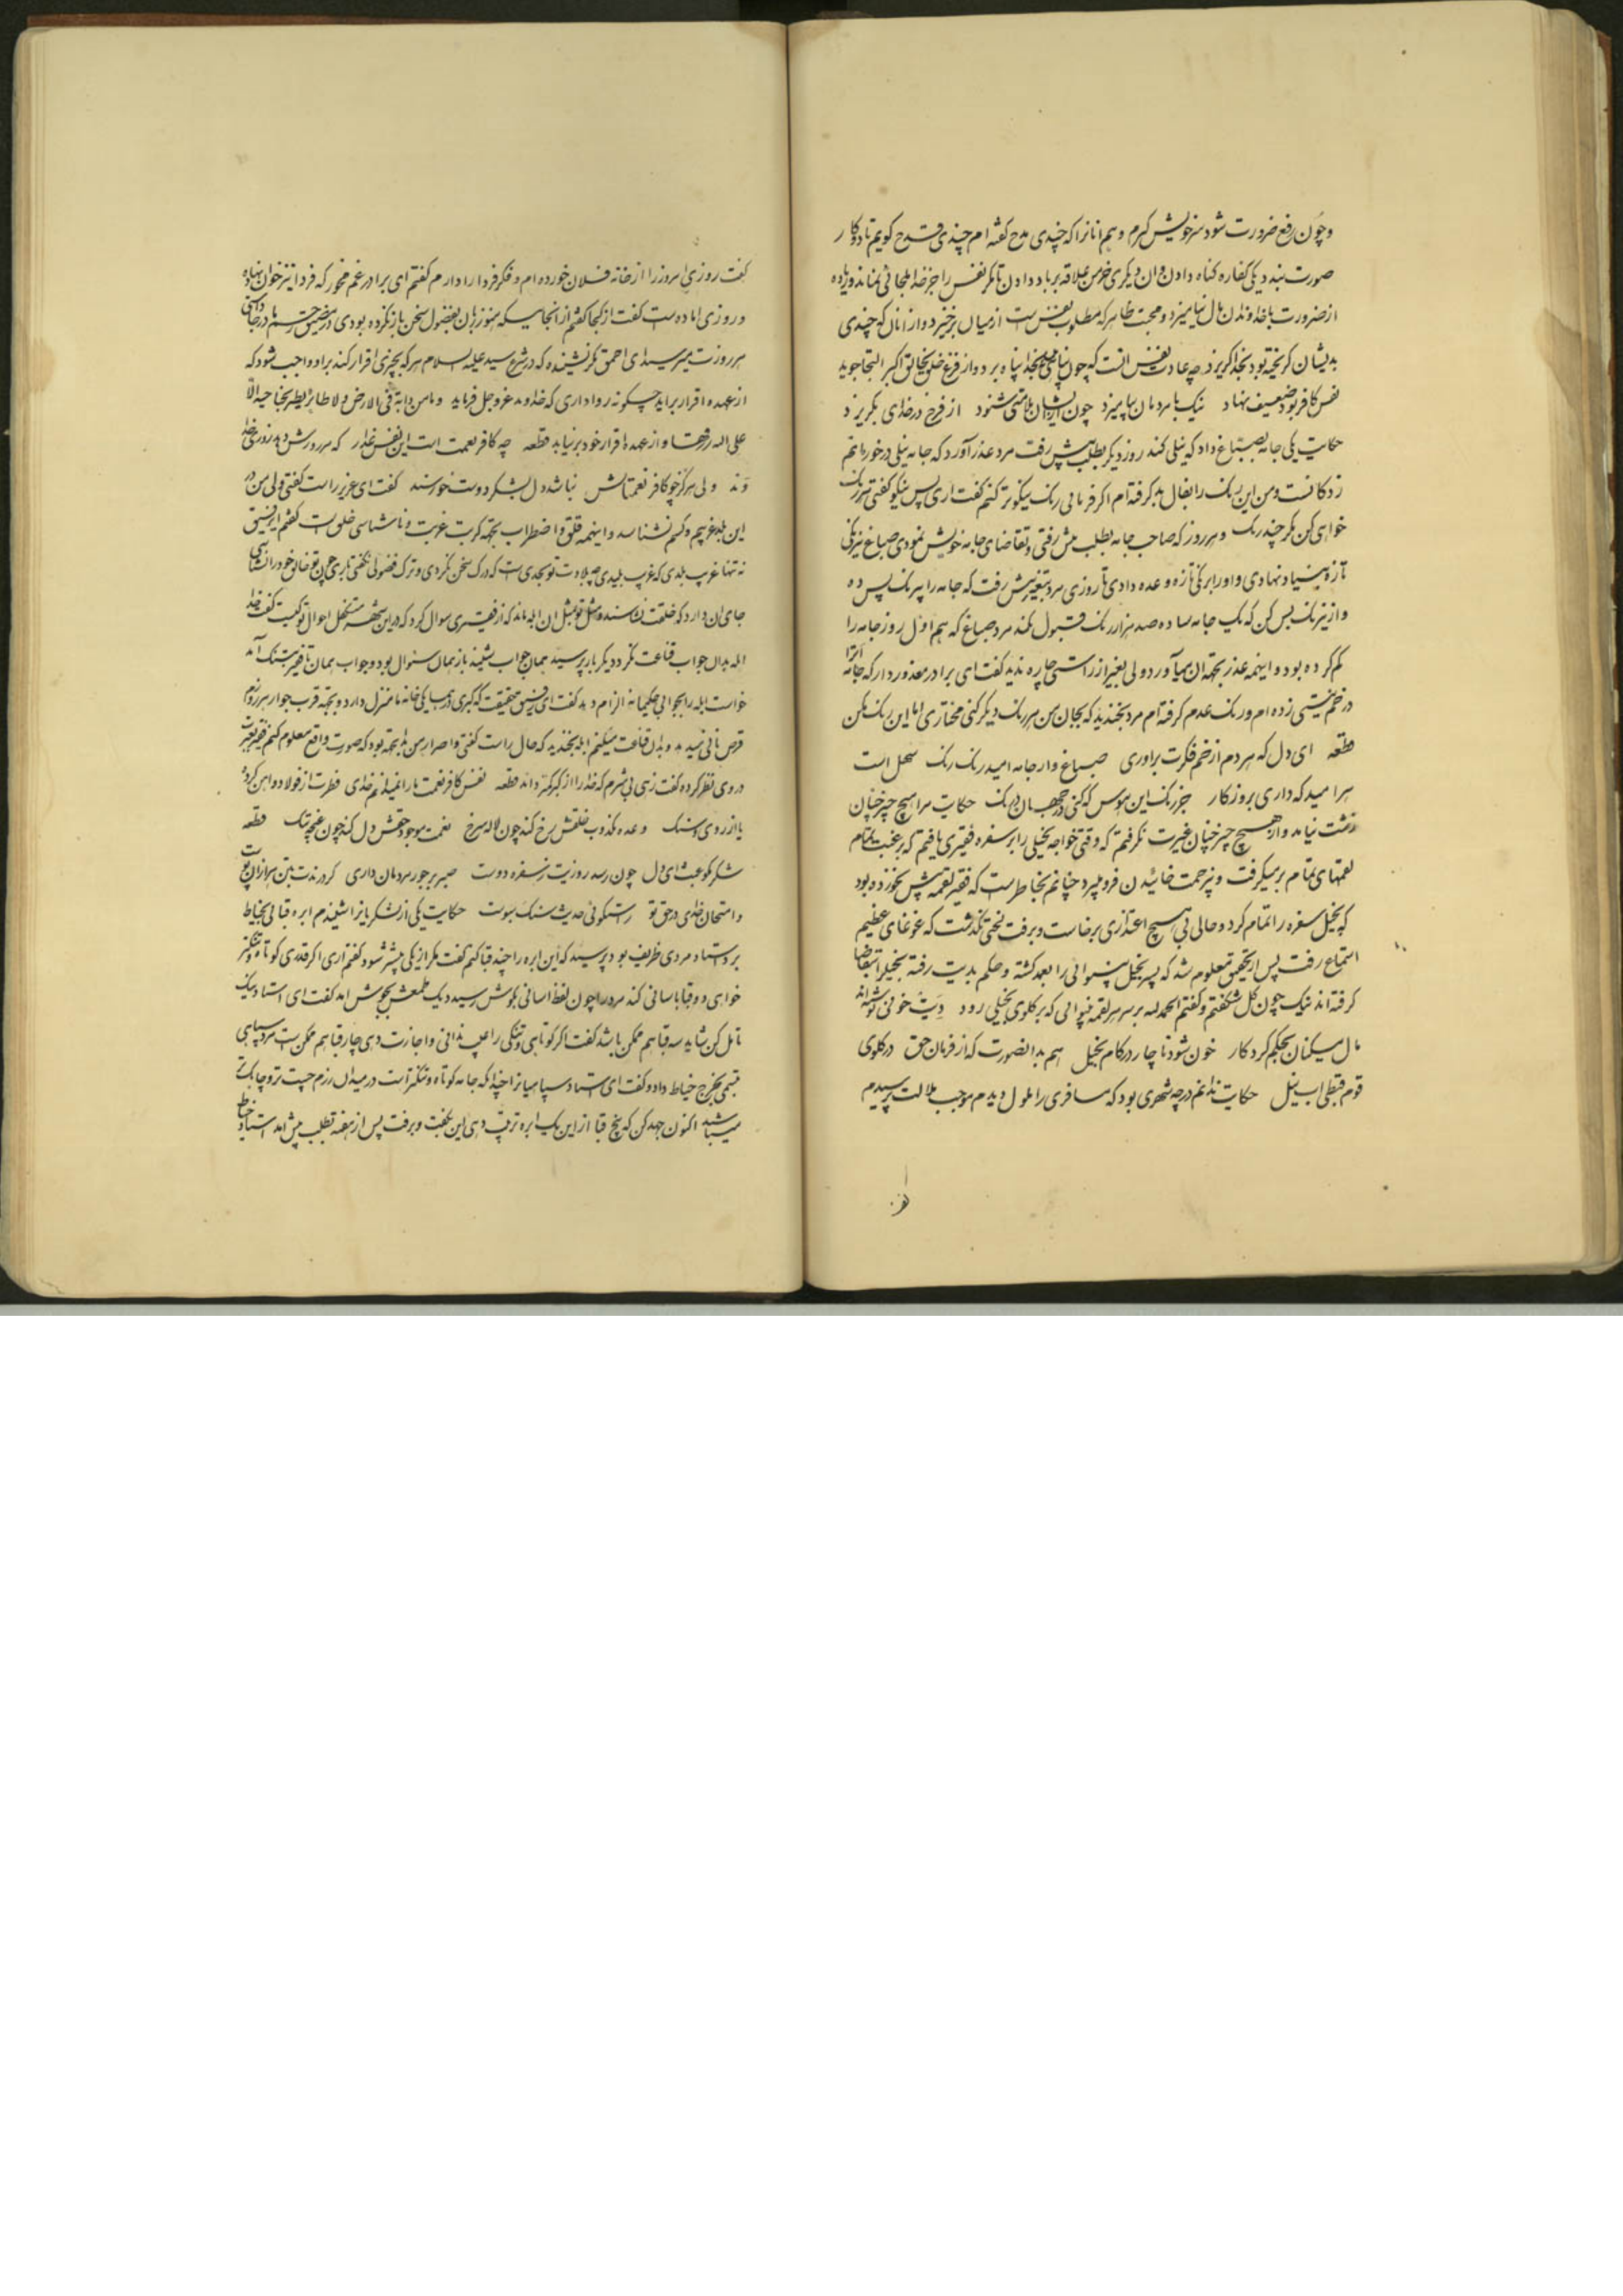 وچون رفع ضرورت شود سرخویش گیرم وهم انانرا که چندی مدح گفته ام چندی قدح کویم تا دو کار
صورت بندد یکی کفاره کناه دادن وان دیکری خرمن علاقه برباد دادن تا مکر نفس را جز خدا ملجائی نماند وزیاده
از ضرورت باخداوندان مال نیامیزد ومحبت ظاهر که مطلوب نفس است از میان برخیزد واز انان که چندی
بدیشان کریخته بود بخدا کریزد چه عادت نفس انست که چون پناهی بخدا پناه برد واز فزع خلق بخالق اکبر التجا جوید
نفس کافر بود ضعیف نهاد نیک با مردمان بیامیزد چون از ایشان ملامتی شنود از فزع در خدای بکریزد
حکایت یکی جامه بصباغ داد که نیلی کند روز دیکر بطلبش رفت مرد عذر آورد که جامه نیلی درخور ماتم
زدکانست ومن این رنک را بفال بد کرفته ام اکر فرمائی رنک نیکوتر کنم گفت اری پس نیکو کفتی هر رنک
خواهی کن مکر چند رنک وهر روز که صاحب جامه بطلب پیش رفتی وتقاضای جامه خویش نمودی صباغ نیرنکی
تازه بنیاد نهادی واورا برنکی تازه وعده دادی تا روزی مرد بتغیر پیش رفت که جامه را بیرنک پس ده
واز نیرنک بس کن که یک جامه ساده صد هزار رنک قبول نکند مرد صباغ که هم اول روز جامه را
کم کرده بود واینهمه عذر بجهة ان میآورد ولی بغیر از راستی چاره ندید گفت ای برادر معذور دار که جامه انرا
در خم نیستی زده ام ورنک عدم کرفته ام مرد بخندید که بجان من هر رنک دیکر کنی مختاری اما این رنک مکن
قطعه ای دل که هردم از خم فکرت براوری صباغ وار جامه امید رنک رنک سهل است
هر امید که داری بروزکار جز رنک این هوس که کنی در جهان درنک حکایت مرا هیچ چیز چنان
زشت نیامد واز هیچ چیز چنان غیرت نکرفتم که وقتی خواجه بخیلی را بر سفره فقیری یافتم که برغبت تمام
لقمهای تمام برمیکرفت وبیزحمت خائیدن فرو میبرد چنانم بخاطر است که فقیر لقمه بیش نخورده بود
که بخیل سفره را تمام کرد وحالی بی هیچ اعتذاری برخاست وبرفت لختی نکذشت که غوغای عظیم
استماع رفت پس از تحقیق معلوم شد که پسر بخیل بینوائی را بعمد کشته وحکم بدیت رفته بخیل را بتقاضا
کرفته اند نیک چون کل شکفتم وکفتم الحمد لله بر سر هر لقمه بینوائی که بر کلوی بخیلی رود دیت خونی نوشته اند
مال مسکینان بحکم کردکار خون شود ناچار در کام بخیل هم بدانصورت که از فرمان حق در کلوی
قوم قبطی اب نیل حکایت ندانم در چه شهری بود که مسافری را ملول دیدم موجب ملالت پرسیدم
گفت روزی امروز را از خانه فلان خورده ام وفکر فردا را دارم گفتم ای برادر غم مخور که فردا نیز خوان نهاده
وروزی اماده است گفت از کجا گفتم از انجا سیکه هنوز زبان بفضول سخن باز نکرده بودی در مضیق رحم مادر جا داشتی
هر روزت میرسید ای احمق مکر نشنیده که در شرع سید علیه السلام هر که بچیزی اقرار کند براو واجب شود که
از عهده اقرار براید چکونه رواداری که خداوند عزوجل فرماید وما من دابة فی الارض ولا طائر یطیر بجناحیه الا
علی الله رزقها واز عهده اقرار خود برنیاید قطعه چه کافر نعمت است این نفس غدار که هر روزش دهد روزی خدا
وند ولی هرکز چو کافر نعمتانش نباشد دل بشکر دوست خورسند گفت ای عزیز راست کفتی ولی من در
این بلد غریبم وکسم نشناسد واینهمه قلق واضطراب بجهة کربت غربت وناشناسی خلق است کفتم ای رفیق
نه تنها غریب بلدی که غریب بلیدی چه بلادت تو بحدی است که درک سخن نکردی وترک فضولی نکفتی باری چون تو خالق خود را نشناسی
جای ان دارد که خلقت نشناسند ومثل تو بمثل ان ابله ماند که از فقیری سوال کرد که در این شهر متکفل احوال تو کیست گفت خدا
ابله بدان جواب قناعت نکرد دیکر بار پرسید همان جواب شنید باز همان سئوال بود وجواب همان تا فقیر بتنک آمد
خواست ابله را بجوابی حکیمانه الزام دهد کفت ای رفیق حقیقت که کبری در همسایکی خانه ما منزل دارد وبجهة قرب جوار هر روزم
قرص نانی میدهد وبدان قناعت میکنم ابله بخندید که حال راست کفتی واصرار من بدینجهة بود که صورت واقع معلوم کنم فقیر بغیرت
در وی نظر کرده کفت زهی بی شرم که خدا را از کبر کمتر داند قطعه نفس کافر نعمت ما را نمیدانم خدای فطرت از فولاد واهن کرده
یا از روی وسنک وعده مکذوب خلقش سرخ کند چون لاله سرخ نعمت موجود حقش دل کند چون غنچه تنک قطعه
شکر کو عبث ای دل چون رسد روزیت ز سفره دوست صبر بر جور مردمان داری کر درندت بتن هزاران پوست
وامتحان خدای در حق تو راستکوئی حدیث سنک وسبوست حکایت یکی از لشکریانرا شنیدم ابره قبائی بخیاط
برد استاد مردی ظریف بود پرسید که این ابره را چند قبا کنم گفت مکر از یکی بیشتر شود گفتم آری اکر قدری کوتاه وتنکتر
خواهی دو قبا باسانی کند مرد را چون لفظ اسانی بکوش رسید دیک طمعش بجوش امد گفت ای استاد نیک
تامل کن شاید سه قبا هم ممکن باشد کفت اکر کوتاهی وتنکی را عیب ندانی واجازت دهی چار قبا هم ممکن است مرد سپاهی
بخرج خیاط داد وکفت ای استاد سپاهیانرا چندانکه جامه کوتاه وتنکتر است در میدان رزم چست تر وچابکتر
میباشند اکنون جهد کن که پنج قبا از این یک ابره ترتیب دهی این بکفت وبرفت پس از هفته بطلب پیش امد استاد خیاط